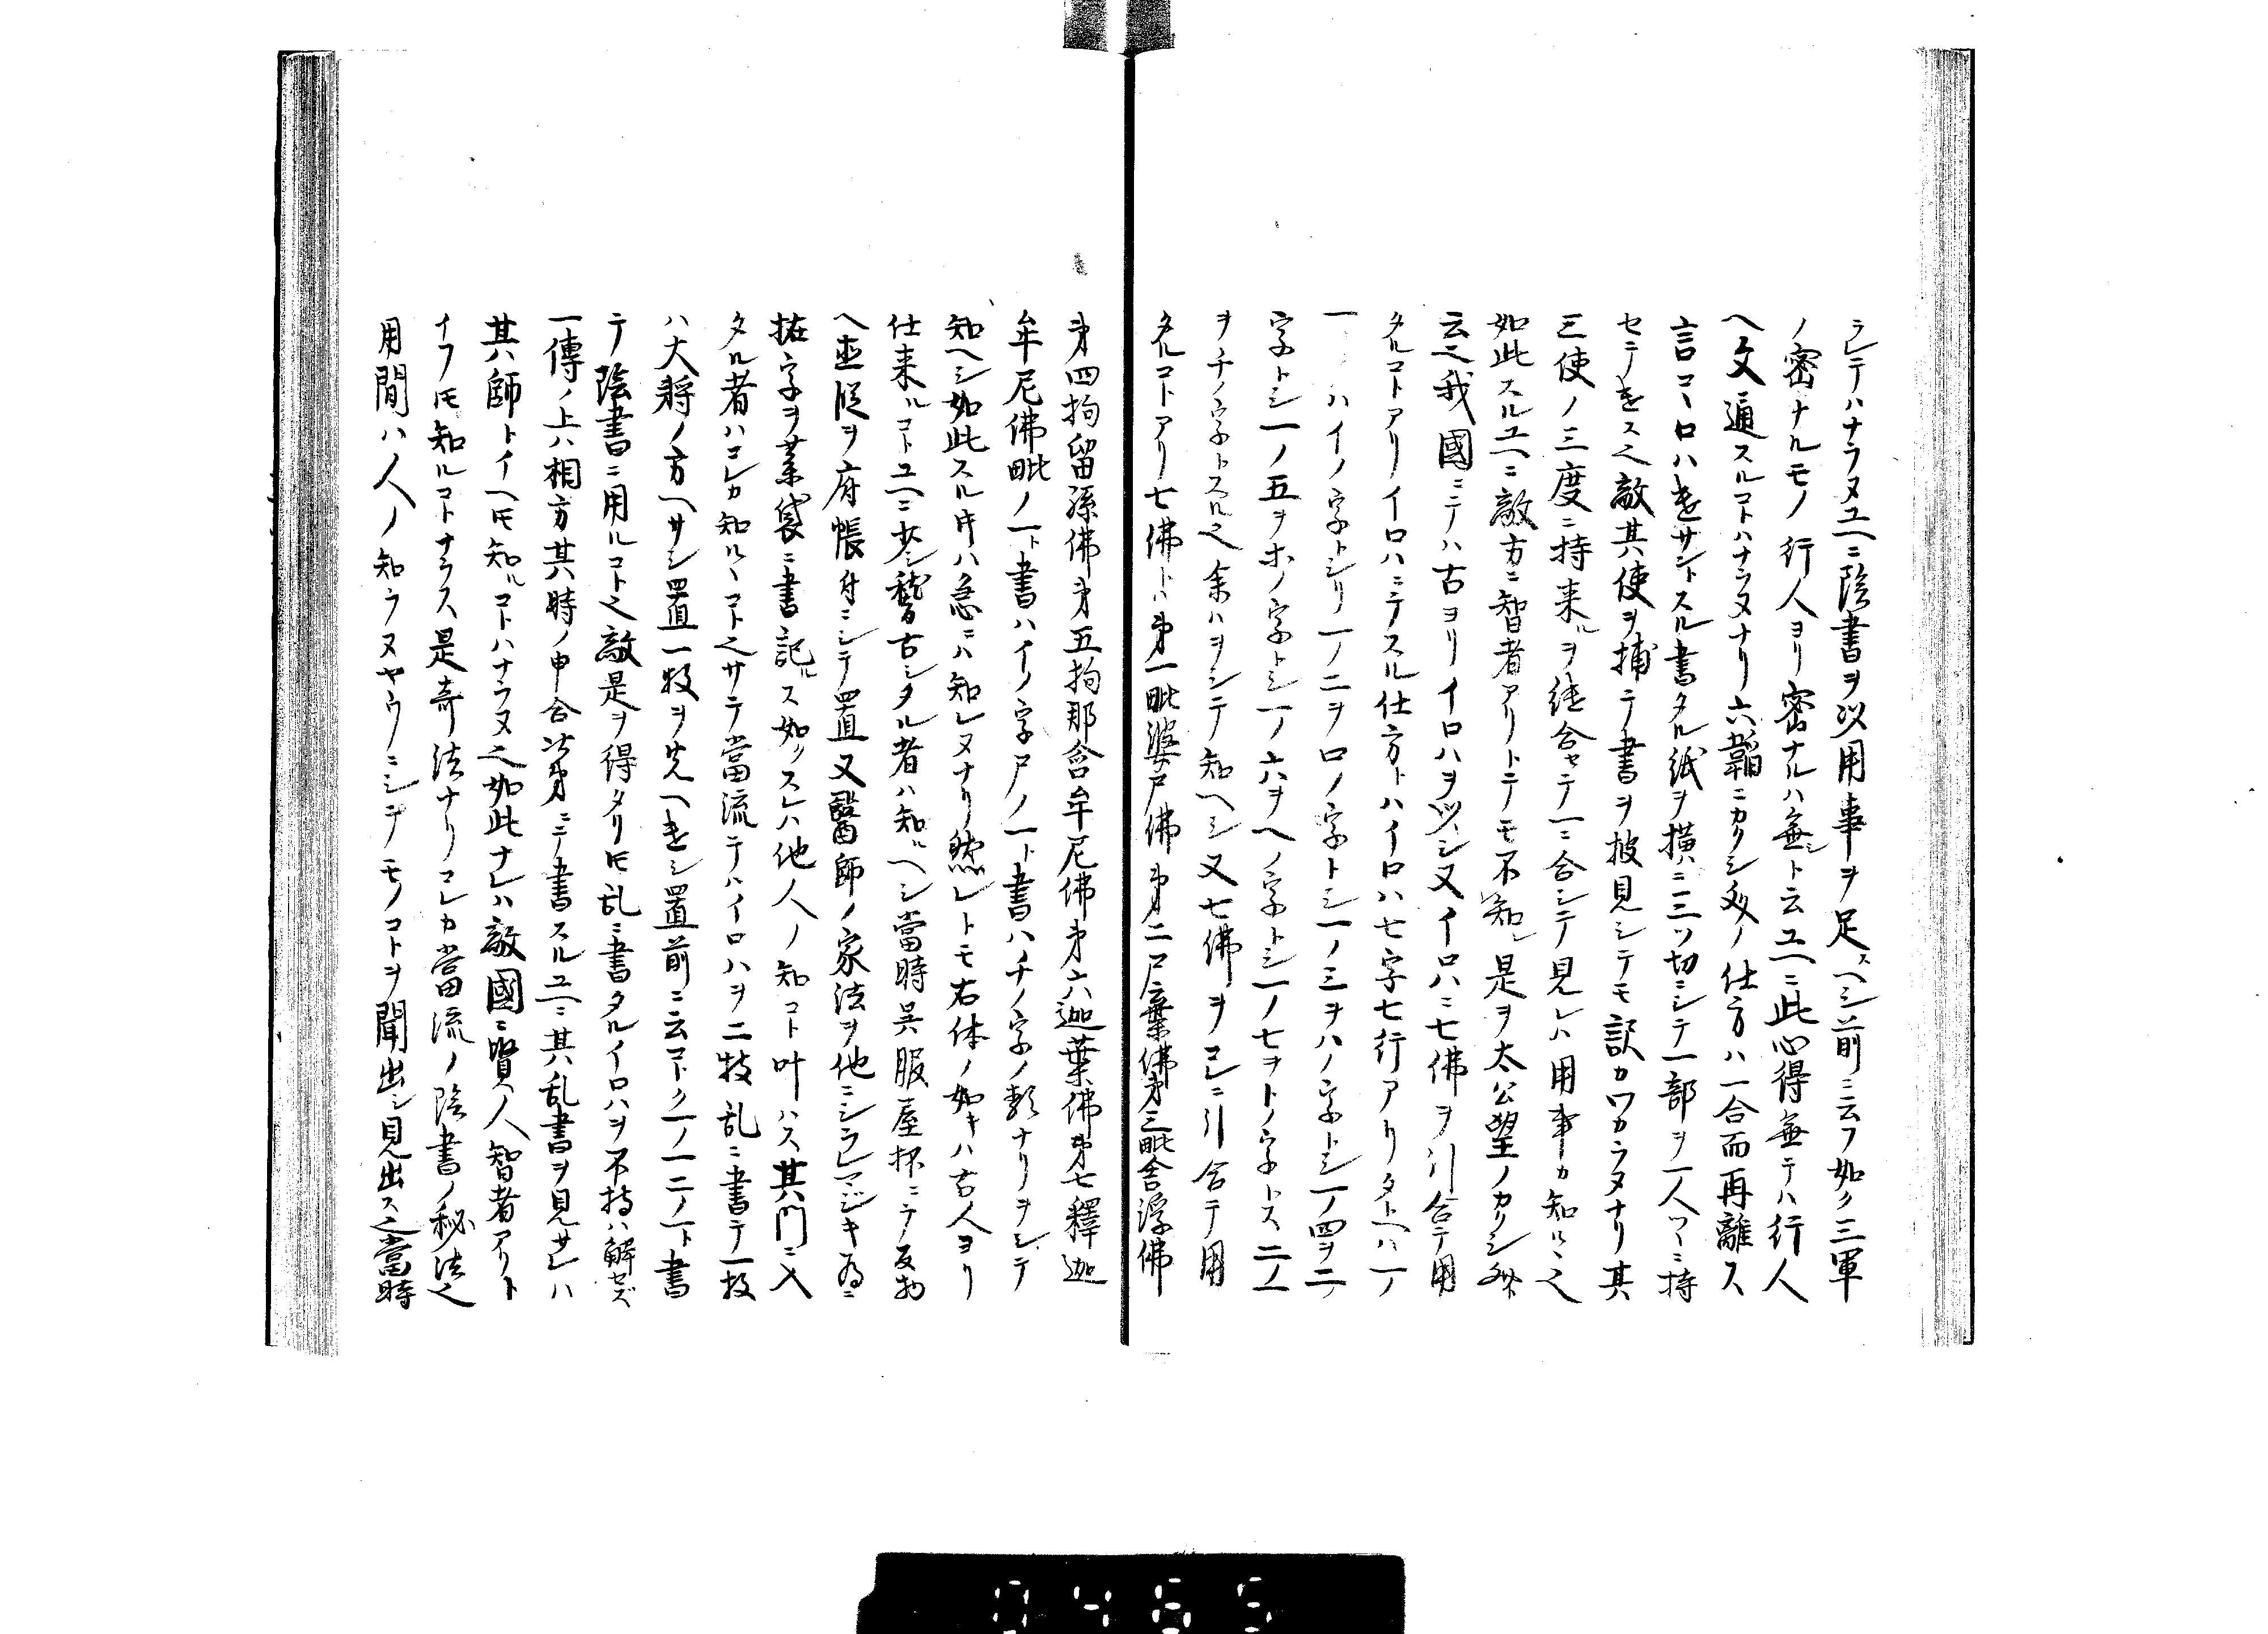 ラレテハナラヌユヘニ陰書ヲ以用事ヲ足スヘシ前ニ云フ如ク三軍
ノ密ナルモノ行人ヨリ密ナルハ無シト云ユヘニ此心得無テハ行人
ヘ文通スルコトハナラヌナリ六韜ニカクシ文ノ仕方ハ一合而再離ス
言コヽロハ遣サントスル書タル紙ヲ横ニ三ツ切ニシテ一部ヲ一人ツヽニ持
セテ遣ス也敵其使ヲ捕テ書ヲ披見シテモ訳カワカラヌナリ其
三使ノ三度ニ持来ルヲ継合セテ一ニ合シテ見レハ用事カ知ルヽ也
如此スルユヘニ敵方ニ智者アリトテモ不知レ是ヲ太公望ノカクシ文ト
云也我國ニテハ古ヨリイロハヲ以シ又イロハニ七佛ヲ引合テ用
タルコトアリイロハニテスル仕方トハイロハ七字七行アリタトヘハ一ノ
一ハイノ字トシリ一ノ二ヲロノ字トシ一ノ三ヲハノ字トシ一ノ四ヲニノ
字トシ一ノ五ヲホノ字トシ一ノ六ヲヘノ字トシ一ノ七ヲトノ字トス二ノ一
ヲチノ字トスル也余ハヲシテ知ヘシ又七佛ヲコレニ引合テ用
タルコトアリ七佛トハ第一毗婆尸佛第二尸棄佛第三毗舎浮佛
第四拘留孫佛第五拘那含牟尼佛第六迦葉佛第七釋迦
牟尼佛毗ノ一ト書ハイノ字尸ノ一ト書ハチノ字ノ類ナリヲシテ
知ヘシ如此スル片ハ急ニハ知レヌナリ然レトモ右体ノ如キハ古人ヨリ
仕来ルコトユヘニ少シ稽古シタル者ハ知ルヘシ當時呉服屋抔ニテ反物
ヘ直段ヲ府帳身ニシテ置又醫師ノ家法ヲ他ニシラレマジキ為ニ
拵字ヲ薬袋ニ書記ルス如クスレハ他人ノ知コト叶ハス其門ニ入
タル者ハコレカ知ルヽコト也サテ當流テハイロハヲ二枚乱ニ書テ一枚
ハ大将ノ方ヘサシ置一枚ヲ先ヘ遣シ置前ニ云コトク一ノ一二ノ一ト書
テ陰書ニ用ルコト也敵是ヲ得タリ𪜈乱ニ書タルイロハヲ不持ハ解セズ
一傳ノ上ハ相方其時ノ申合次第ニテ書スルユヘニ其乱書ヲ見サレハ
其師トイヘ𪜈知ルコトハナラヌ也如此ナレハ敵國ニ賢人智者アリト
イフ𪜈知ルコトナラス是奇法ナリコレカ當流ノ陰書ノ秘法也
用間ハ人ノ知ラヌヤウニシテモノコトヲ聞出シ見出ス也當時